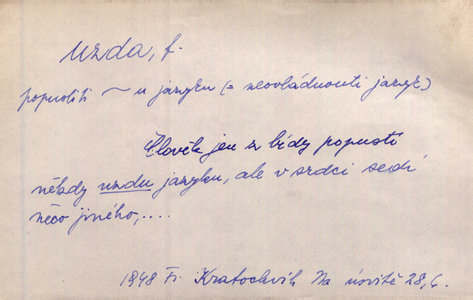 uzda, f.
popustiti ~ u jazyku (= neovládnouti jazyk)
Člověk jen z bídy popustí
někdy uzdu jazyku, ale v srdci sedí
něco jiného,....
1948 Fr. Kratochvíl Na úsvitě 28,6.